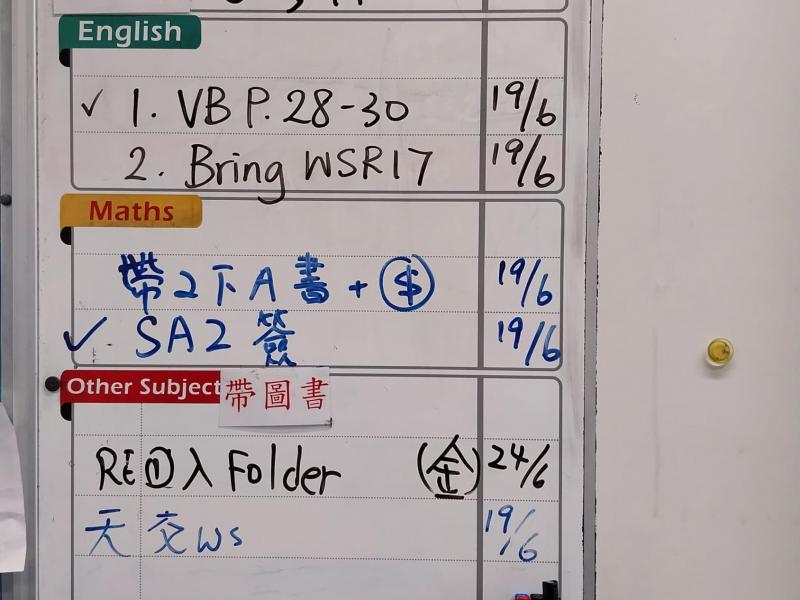 English
✓ 1. VB P. 28-30 19/6
2. Bring WSR17 19/6
Maths
帶2下A書 + $ 19/6
✓ SA2 簽 19/6
Other Subject 帶圖書
RE ① 入 Folder (金) 24/6
天 交 WS 19/6